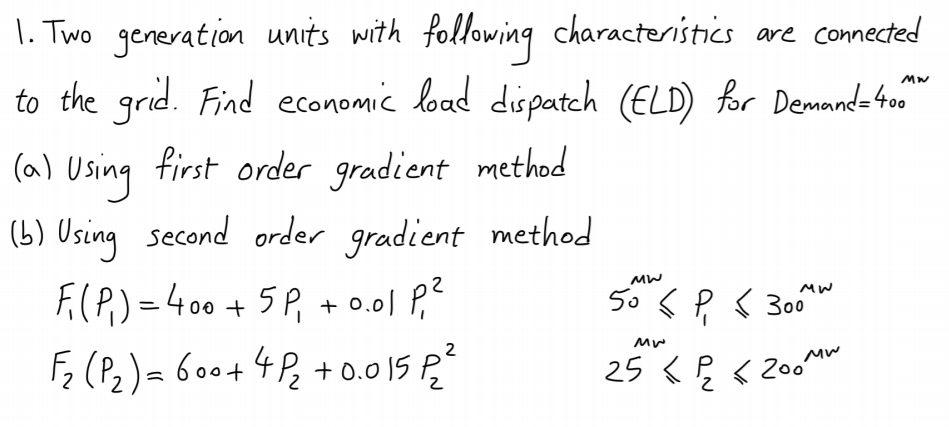 1. Two generation units with following characteristics are connected
to the grid. Find economic load dispatch (ELD) for Demand=400 MW
(a) Using first order gradient method
(b) Using second order gradient method
F₁(P₁) = 400 + 5P₁ + 0.01 P₁² 50 MW ⩽ P₁ ⩽ 300 MW
F₂(P₂) = 600 + 4P₂ + 0.015 P₂² 25 MW ⩽ P₂ ⩽ 200 MW